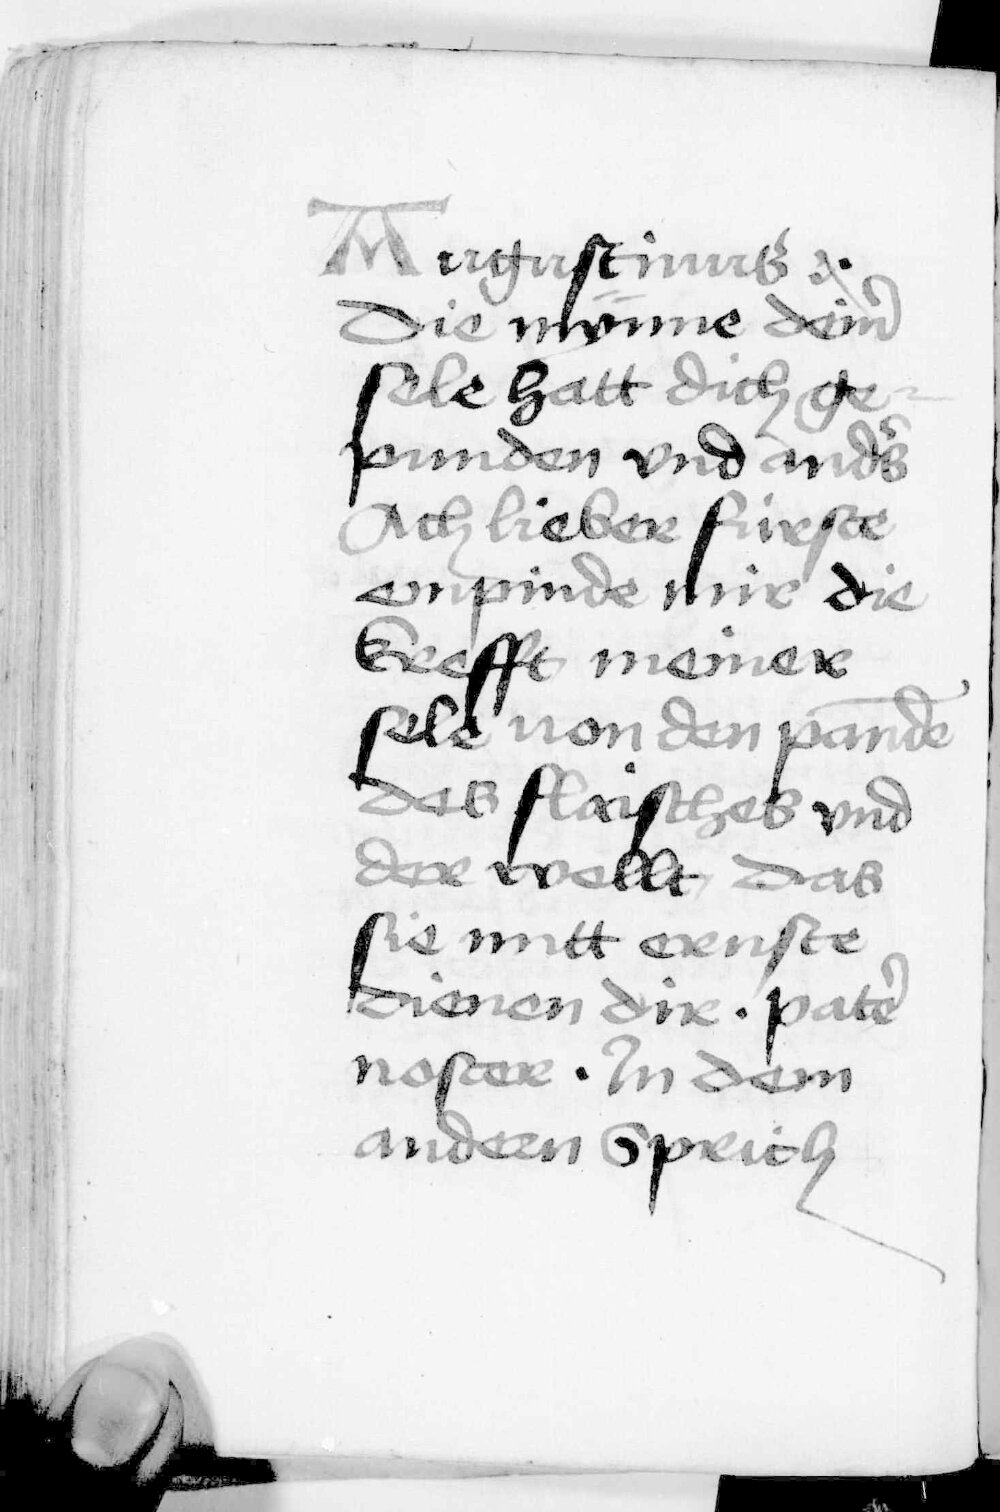 Augustinus .
Die mynne dein͛
sele hatt dich ge-
punden vnd and͛s
Ach lieber fürste
enpinde mir die
krefft meiner
sele von den pande̅
des flaisches vnd
der wellt, das
sie mitt ernste
dienen dir · pate͛
noster · In dem
andern Sprich